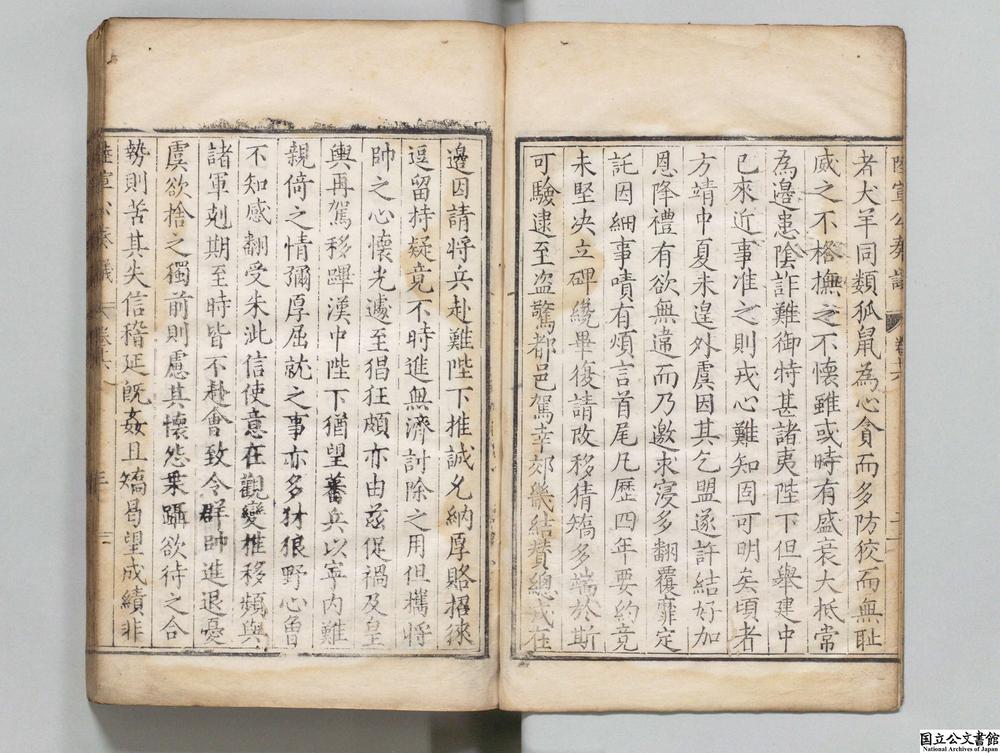 陸宣公奏議 卷十六
者犬羊同類狐鼠為心貪而多防狡而無恥
威之不格撫之不懷雖或時有盛衰大抵常
為邊患陰詐難御特甚諸夷陛下但舉建中
已來近事准之則戎心難知固可明矣頃者
方靖中夏未遑外虞因其乞盟遂許結好加
恩降禮有欲無違而乃邀求寖多翻覆靡定
託因細事嘖有煩言首尾凡歷四年要約竟
未堅決立碑纔畢復請改移猜矯多端於斯
可驗逮至盜驚都邑駕幸郊畿結贊總戎在
邊因請將兵赴難陛下推誠允納厚賂招徠
逗留持疑竟不時進無濟討除之用但攜將
帥之心懷光遽至猖狂頗亦由茲促禍及皇
輿再駕移蹕漢中陛下猶望蕃兵以寧內難
親倚之情彌厚屈就之事亦多豺狼野心曾
不知感翻受朱泚信使意在觀變推移頻與
諸軍剋期至時皆不赴會致令群帥進退憂
虞欲捨之獨前則慮其懷怨乘躡欲待之合
勢則苦其失信稽延既姦且矯曷望成績非
陸宣公奏議 卷十六
国立公文書館
National Archives of Japan